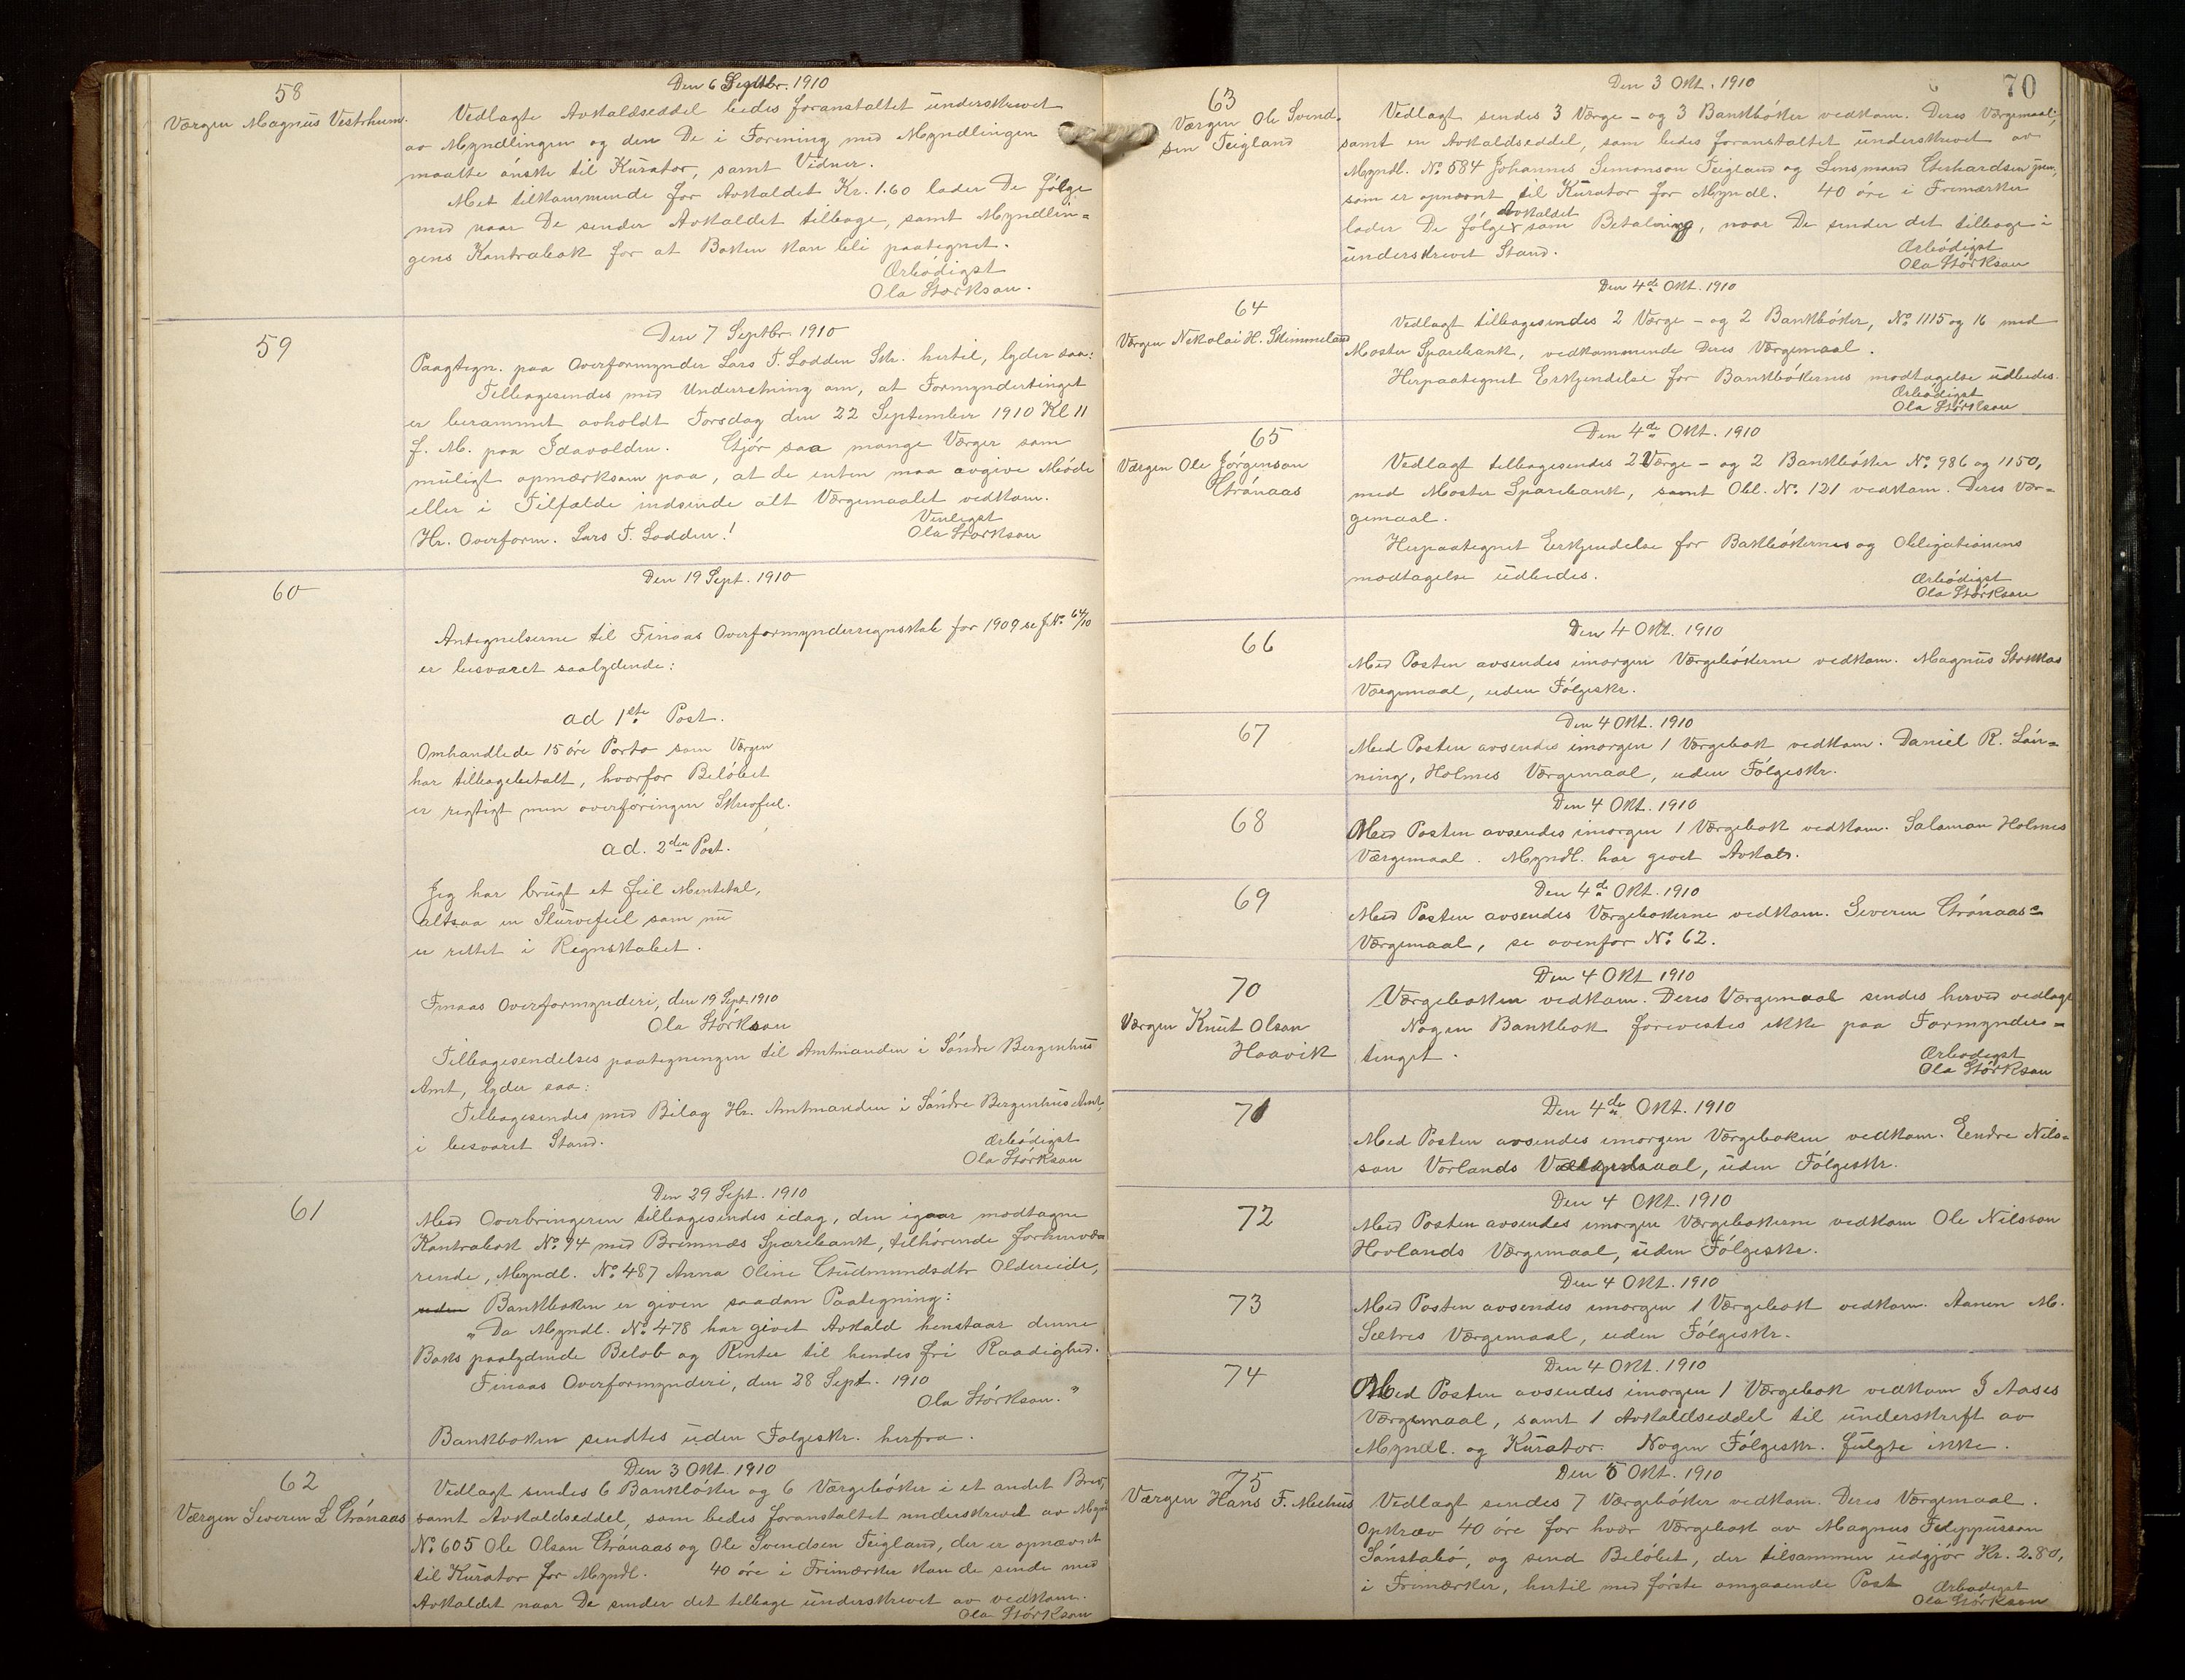 58
Værgen Magnus Vestrhum.
Den 6 Septbr. 1910
Vedlagte Avkaldseddel bedes foranstaltet underskrevet
av Myndlingen og den De i Forening med Myndlingen
maatte ønske til Kurator, samt Vidner.
Med tilkommende for Avkaldet Kr. 1.60 lader De følge
med naar De sender Avkaldet tilbage, samt Myndlin=
gens Kontrabok for at Boken kan bli paategnet.
Ærbødigst
Ola Størkson.
59
Den 7 Septbr. 1910
Paagtegn. paa Overformynder Lars T. Lodden Skr. hertil, lyder saa:
Tilbagesendes med Underretning om, at Formyndertinget
er berammet avholdt Torsdag den 22 September 1910 Kl 11
f. M. paa Idavolden. Gjør saa mange Værger som
muligt opmærksom paa, at de enten maa avgive Møde
eller i Tilfælde indsende alt Værgemaalet vedkom.
Venligst
Hr. Overform. Lars T. Lodden! Ola Størkson
60
Den 19 Sept. 1910
Antegnelserne til Finaas Overformynderregnskab for 1909 se J. No. 64/10
er besvaret saalydende:
ad 1ste Post.
Omhandlede 15 øre Porto som Værgen
har tilbagebetalt, hvorfor Beløbet
er rigtigt men overføringen Skrivfeil.
ad. 2den Post.
Jeg har brugt et feil Mentetal,
altsaa en Slurvefeil som nu
er rettet i Regnskabet.
Finaas Overformynderi, den 19 Sept. 1910
Ola Størkson
Tilbagesendelses paategningen til Amtmanden i Søndre Bergenhus
Amt, lyder saa:
Tilbagesendes med Bilag Hr. Amtmanden i Søndre Bergenhus Amt,
i besvaret Stand.
Ærbødigst
Ola Størkson
61
Den 29 Sept. 1910
Med Overbringeren tilbagesendes idag, den igaar modtagne
Kontrabok No. 94 med Bremnæs Sparebank, tilhørende forhenvæ
rende, Myndl. No. 487 Anna Oline Gudmundsdtr Oldereide,
uden Bankboken er given saadan Paategning:
"Da Myndl. No. 478 har givet Avkald henstaar denne
Boks paalydende Beløb og Renter til hendes fri Raadighed.
Finaas Overformynderi, den 28 Sept. 1910
Ola Størkson."
Bankboken sendtes uden Følgeskr. herfra.
62
Værgen Severin L Grónaas
Den 3 Okt. 1910
Vedlagt sendes 6 Bankbøker og 6 Værgebøker i et andet Brev,
samt Avkaldseddel, som bedes foranstaltet underskrevet av Mynd
No. 605 Ole Olson Grónaas og Ole Svendsen Teigland, der er opnævnt
til Kurator for Myndl. 40 øre i Frimærker kan de sende med
Avkaldet naar De sender det tilbage underskrevet av vedkom.
Ola Størkson
70
63
Værgen Ole Svend.
sen Teigland
Den 3 Okt. 1910
Vedlagt sendes 3 Værge- og 3 Bankbøker vedkom. Deres Værgemaal,
samt en Avkaldseddel, som bedes foranstaltet underskrevet av
Myndl. No. 584 Johannes Simonson Teigland og Lensmand Eberhardsen jun,
som er opnævnt til Kurator for Myndl. 40 øre i Frimærker
Avkaldet
lader De følge som Betaling, naar De sender det tilbage i
underskrevet Stand.
Ærbødigst
Ola Størkson
64
Værgen Nekolai H. Skimmeland
Den 4de Okt. 1910
Vedlagt tilbagesendes 2 Værge- og 2 Bankbøker, No. 1115 og 16 med
Moster Sparebank, vedkommende Deres Værgemaal.
Herpaategnet Erkjendelse for Bankbøkernes modtagelse udbedes.
Ærbødigst
Ola Størkson
65
Værgen Ole Jørgenson
Grónaas
Den 4de Okt. 1910
Vedlagt tilbagesendes 2 Værge- og 2 Bankbøker No. 986 og 1150,
med Moster Sparebank, samt Obl. No. 121 vedkom. Deres Vær=
gemaal.
Herpaategnet Erkjendelse for Bakbøkernes og Obligationens
modtagelse udbedes.
Ærbødigst
Ola Størkson
66
Den 4 Okt. 1910
Med Posten avsendes imorgen Værgebøkerne vedkom. Magnus Stokkas
Værgemaal, uden Følgeskr.
67
Den 4 Okt. 1910
Med Posten avsendes imorgen 1 Værgebok vedkom. Daniel R. Løn=
ning, Holmes Værgemaal, uden Følgeskr.
68
Den 4 Okt. 1910
Med Posten avsendes imorgen 1 Værgebok vedkom. Saloman Holmes
Værgemaal. Myndl. har givet Avkald.
69
Den 4de Okt. 1910
Med Posten avsendes Værgebøkerne vedkom. Severin Grónaas
Værgemaal, se ovenfor No. 62.
70
Værgen Knut Olson
Haavik
Den 4 Okt 1910
Værgeboken vedkom. Deres Værgemaal sendes herved vedlagt
Nogen Bankbok forevistes ikke paa Formynder=
tinget.
Ærbødigst
Ola Størkson
71
Den 4de Okt. 1910
Med Posten avsendes imorgen Værgeboken vedkom. Eendre Nils=
son Vorlands Værgemaal, uden Følgeskr.
72
Den 4 Okt. 1910
Med Posten avsendes imorgen Værgebøkerne vedkom Ole Nilsson
Hovlands Værgemaal, uden Følgeskr.
73
Den 4 Okt. 1910
Med Posten avsendes imorgen 1 Værgebok vedkom. Aanen M.
Sætres Værgemaal, uden Følgeskr.
74
Den 4 Okt. 1910
Med Posten avsendes imorgen 1 Værgebok vedkom J Aases
Værgemaal, samt 1 Avkaldseddel til underskrift av
Myndl. og Kurator. Nogen Følgeskr. fulgte ikke.
75
Værgen Hans F. Mehus
Den 5 Okt. 1910
Vedlagt sendes 7 Værgebøker vedkom. Deres Værgemaal.
Opkræv 40 øre for hver Værgebok av Magnus Filippusson
Sønstabø, og send Beløbet, der tilsammen udgjør Kr. 2.80,
i Frimærker, hertil med første omgaaende Post
Ærbødigst
Ola Størkson